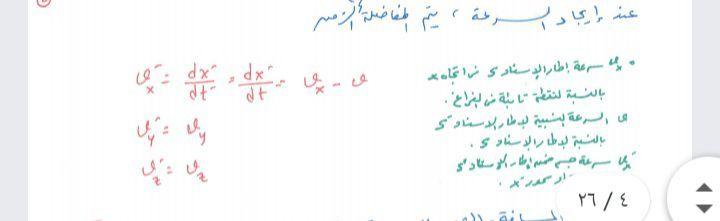 عند إيجاد السرعة ، يتم المفاضلة الزمن
ʋ⁻x = dx⁻/dt⁻ = dx⁻/dt = ʋx - ʋ
ʋ⁻y = ʋy
ʋ⁻z = ʋz
• ʋx سرعة إطار الإسنادي s في اتجاه x
بالنسبة لنقطة ثابتة في الفراغ .
ʋ السرعة لنسبية لإطار الإسنادي s⁻
بالنسبة لإطار الإسنادي s .
ʋ⁻x سرعة جسم ضمن إطار الإسنادي s⁻
x⁻ .
٢٦ / ٤
المسافة